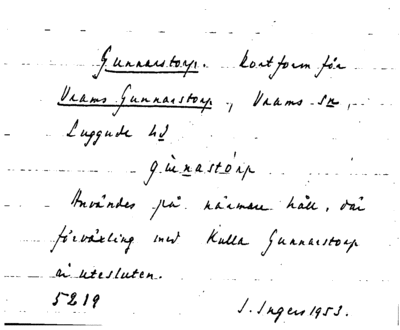 Gunnarstorp. Kortform för
Vrams Gunnarstorp, Vrams sn,
Luggude hd
gùnastórp
Användes på närmare håll, där
förväxling med Kulla Gunnarstorp
är utesluten.
5219 I. Ingers 1953.